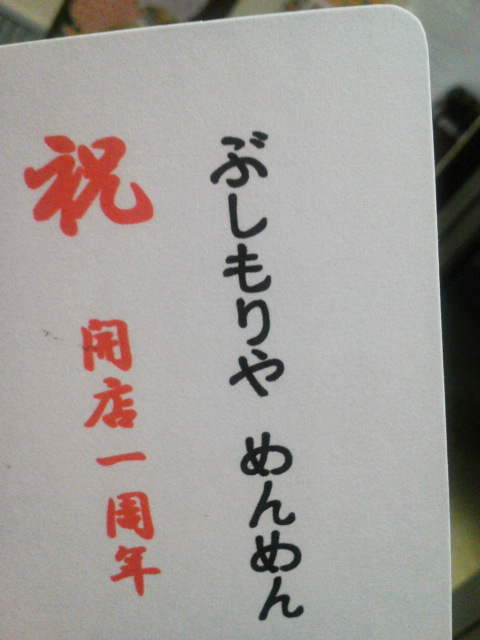 ぶしもりや めんめん
祝
開店一周年